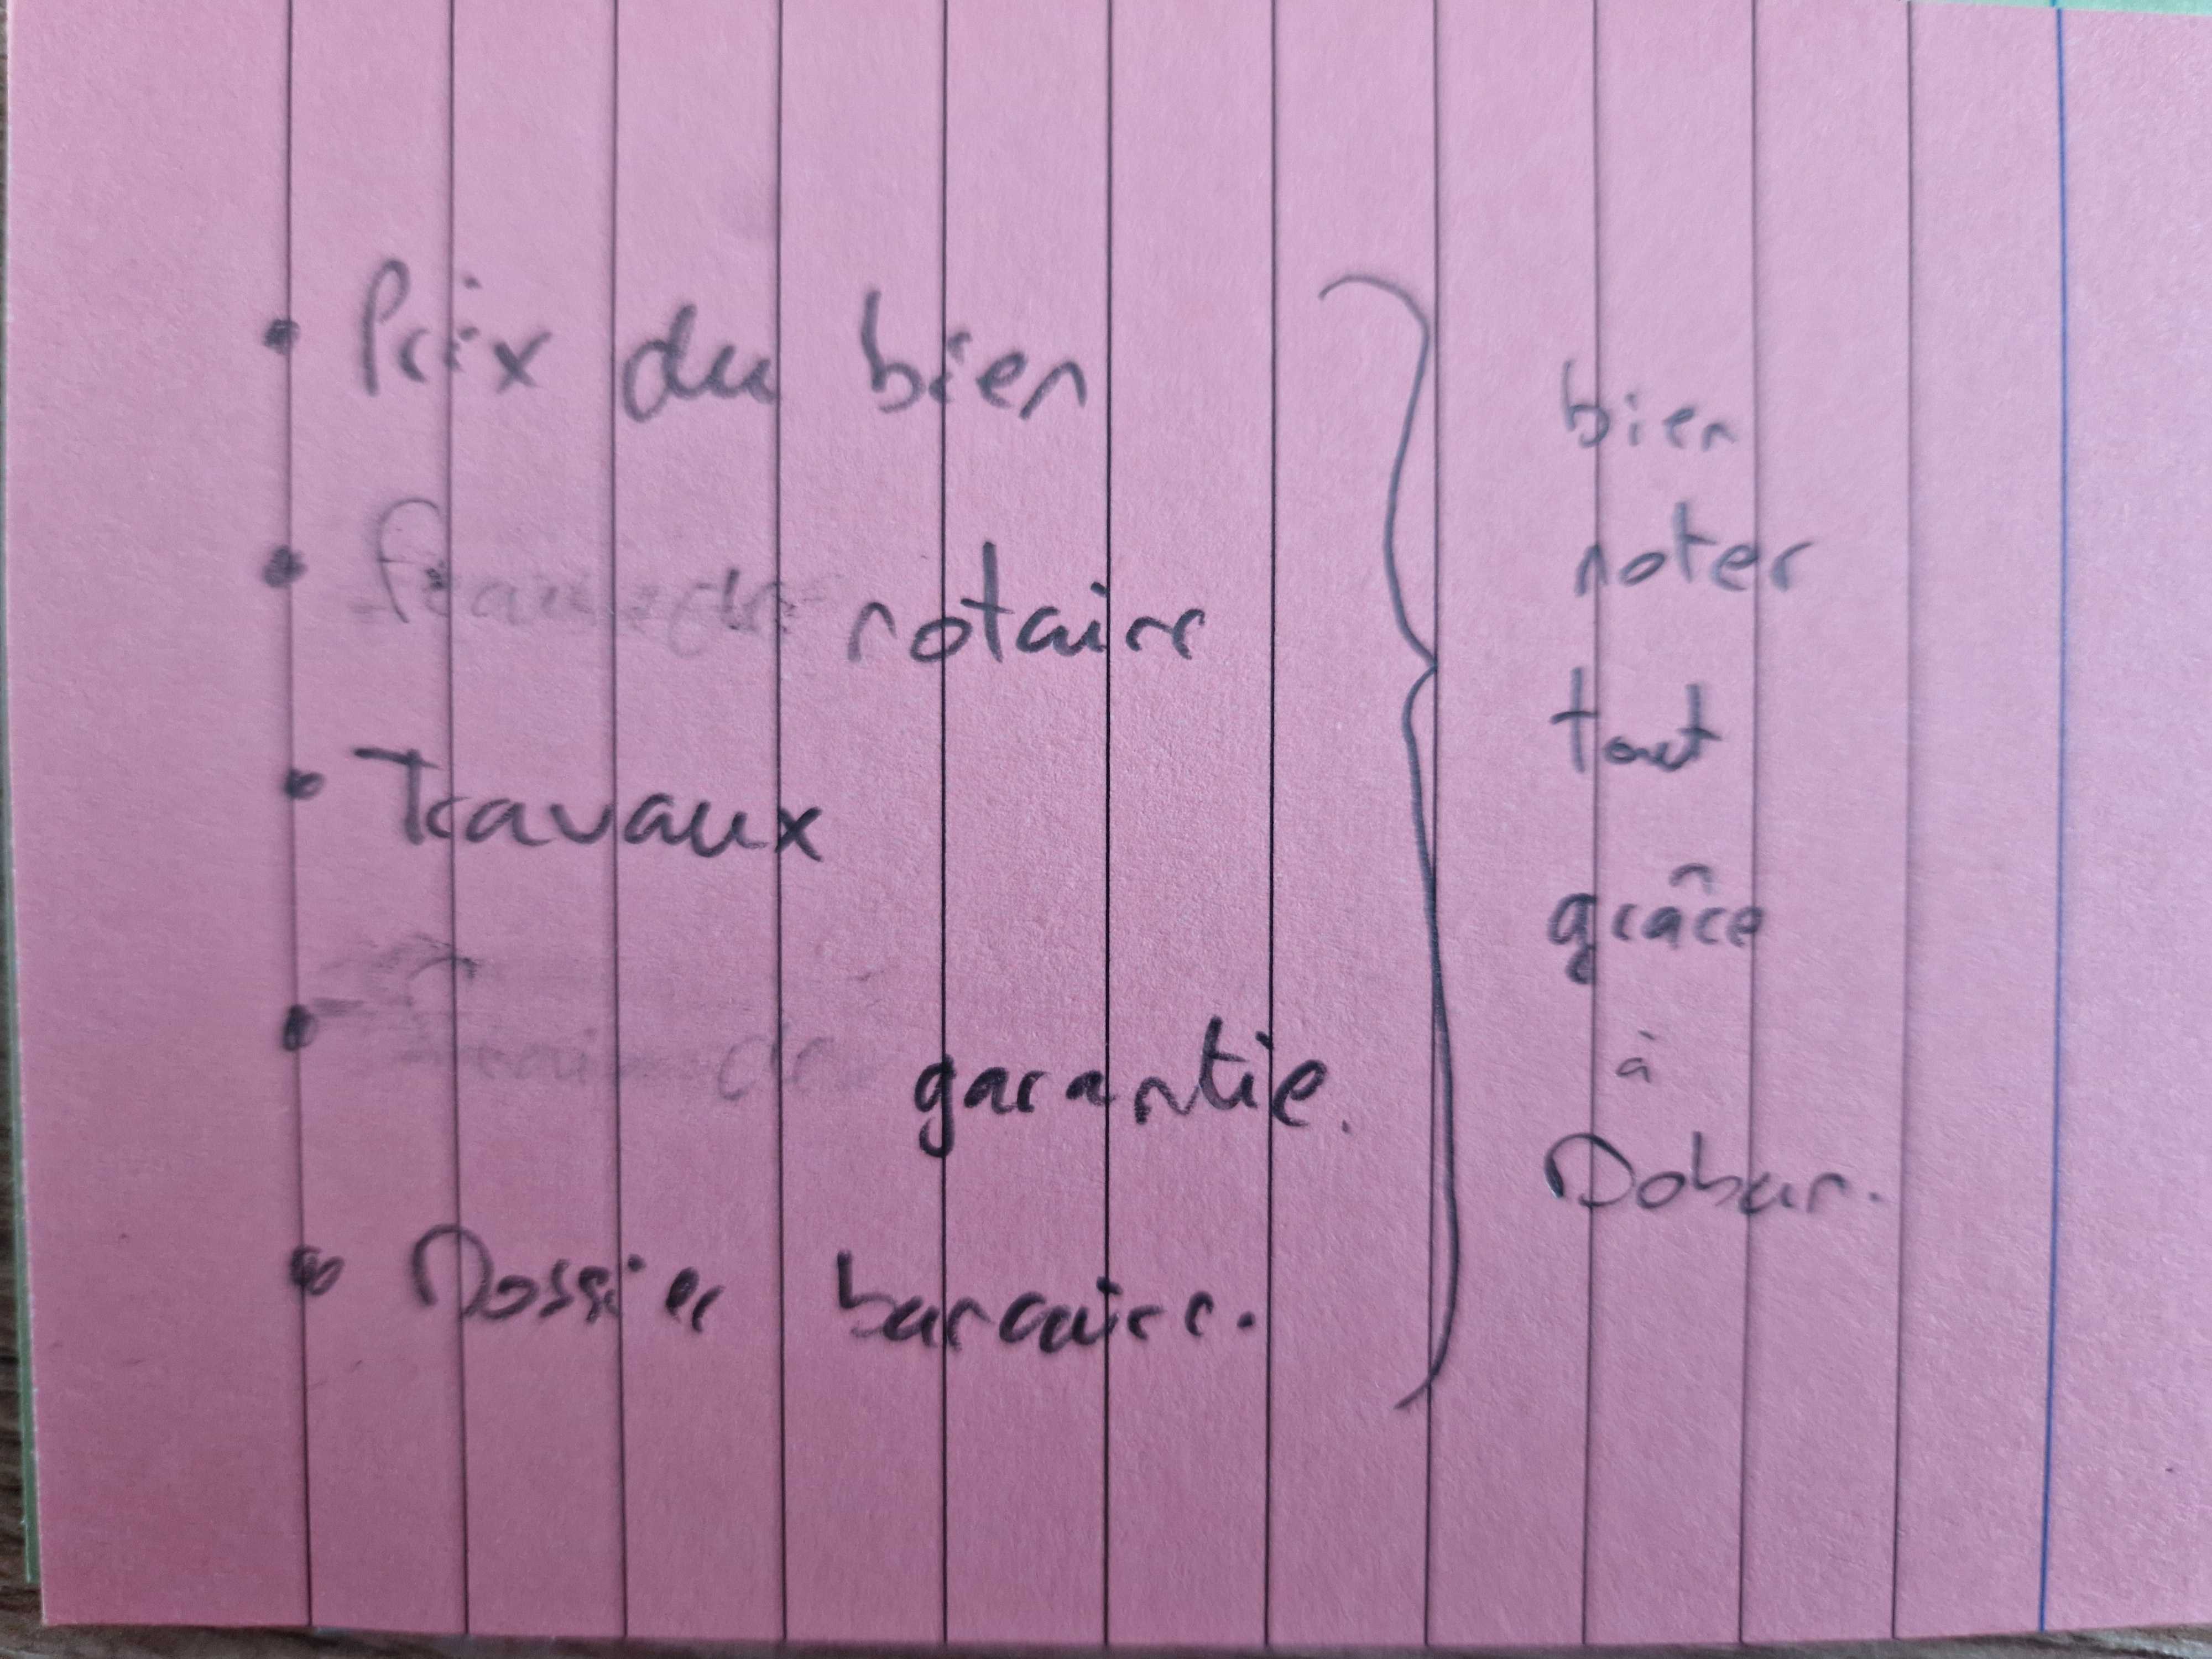 • Prix du bien
• Frais de notaire
• Travaux
• de garantie.
• Dossier bancaire.
bien
noter
tout
grâce
à